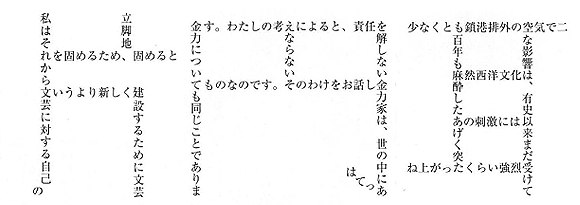 少なくとも鎖港排外の空気で二
百年も麻酔したあげく突
然西洋文化
の刺激には
ね上がったくらい強烈
な影響は、有史以来まだ受けて
金力についても同じことでありま
す。わたしの考えによると、責任
を解しない金力家は、世の中にあ
っては
ならない
ものなのです。そのわけをお話し
私はそれから文芸に対する自己の
立脚地
を固めるため、固めると
いうより新しく
建設するために文芸